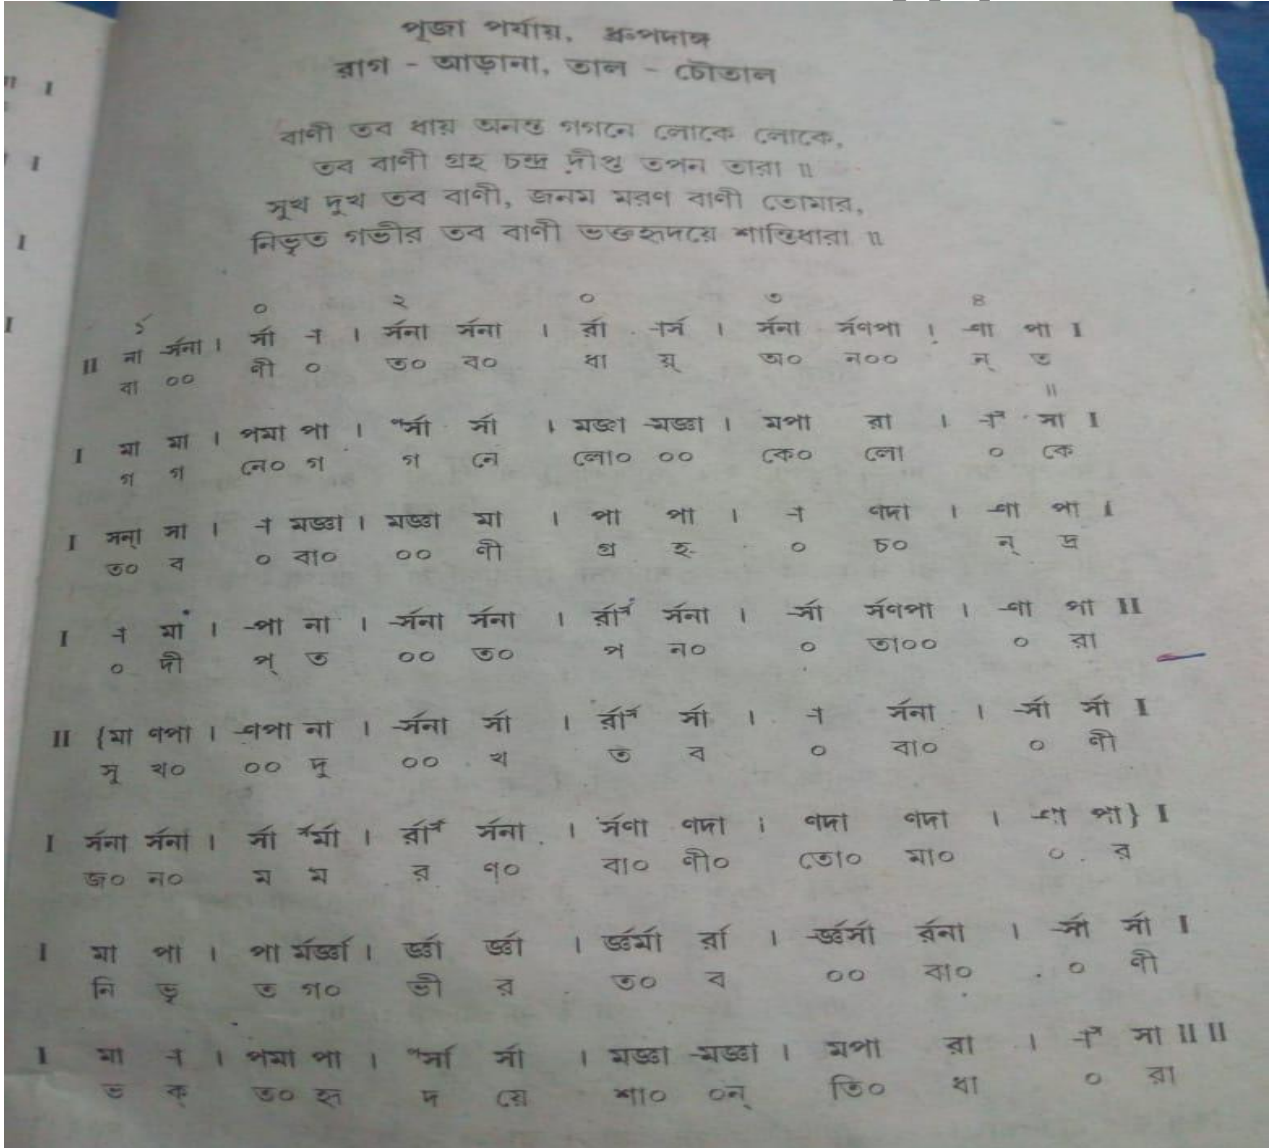 পূজা পর্যায়, ধ্রুপদাঙ্গ
রাগ - আড়ানা, তাল - চৌতাল
বাণী তব ধায় অনন্ত গগনে লোকে লোকে,
তব বাণী গ্রহ চন্দ্র দীপ্ত তপন তারা ॥
সুখ দুখ তব বাণী, জনম মরণ বাণী তোমার,
নিভৃত গভীর তব বাণী ভক্তহৃদয়ে শান্তিধারা ॥
১´ ০ ২ ০ ৩ ৪
II না -র্সনা । র্সা -া । র্সনা র্সনা । র্রা -ার্স । র্সনা র্সণপা । -ণা পা I
বা ০০ ণী ০ ত০ ব০ ধা য়্ অ০ ন০০ ন্ ত
॥
I মা মা । পমা পা । পর্সা র্সা । মজ্ঞা -মজ্ঞা । মপা রা । -াস সা I
গ গ নে০ গ গ নে লো০ ০০ কে০ লো ০ কে
I সন্া সা । -া মজ্ঞা । মজ্ঞা মা । পা পা । -া ণদা । -ণা পা I
ত০ ব ০ বা০ ০০ ণী গ্র হ ০ চ০ ন্ দ্র
I -া মা । -পা না । -র্সনা র্সনা । র্রার্স র্সনা । -র্সা র্সণপা । -ণা পা II
০ দী প্ ত ০০ ত০ প ন০ ০ তা০০ ০ রা
II {মা ণপা । -ণপা না । -র্সনা র্সা । র্রার্স র্সা । -া র্সনা । -র্সা র্সা I
সু খ০ ০০ দু ০০ খ ত ব ০ বা০ ০ ণী
I র্সনা র্সনা । র্সা র্সর্মা । র্রার্স র্সনা । র্সণা ণদা । ণদা ণদা । -ণা পা} I
জ০ ন০ ম ম র ণ০ বা০ ণী০ তো০ মা০ ০ র
I মা পা । পা র্মর্জ্ঞা । র্জ্ঞা র্জ্ঞা । র্জ্ঞর্মা র্রা । -র্জ্ঞর্সা র্রনা । -র্সা র্সা I
নি ভৃ ত গ০ ভী র ত০ ব ০০ বা০ ০ ণী
I মা -া । পমা পা । পর্সা র্সা । মজ্ঞা -মজ্ঞা । মপা রা । -াস সা II II
ভ ক্ ত০ হৃ দ য়ে শা০ ০ন্ তি০ ধা ০ রা